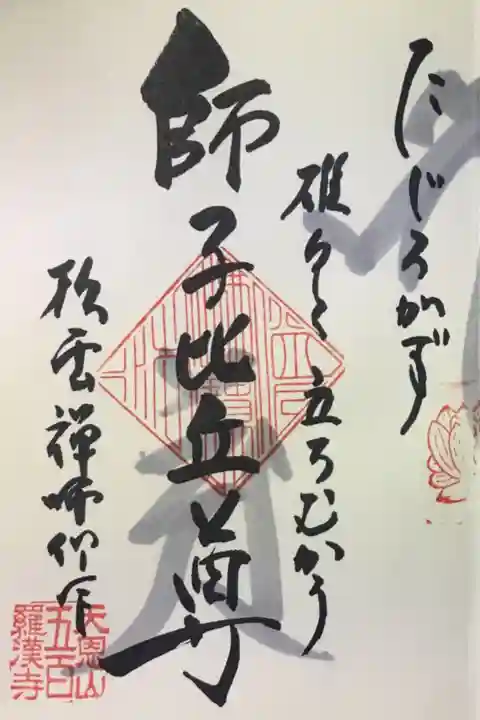 たじろがず
雄々しく立ちむかう
師子比丘尊
松雲禅師作
天恩山
五百
羅漢寺